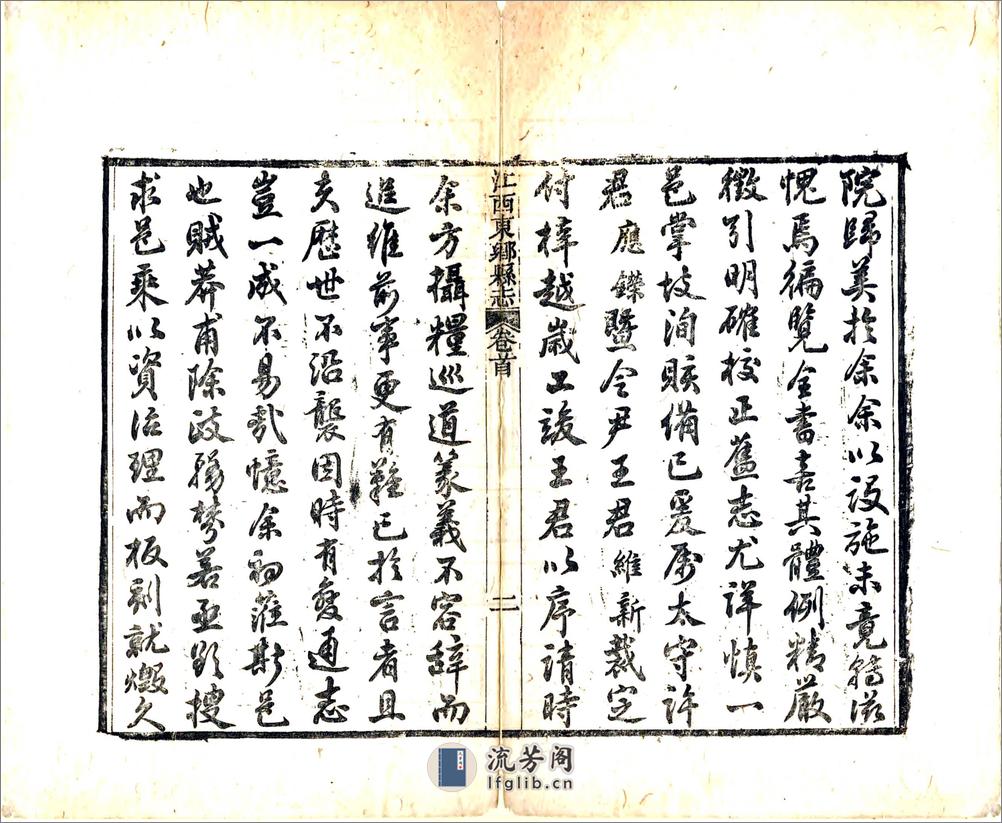 院歸美於余余以設施未竟轉滋
愧焉徧覽全書喜其體例精嚴
徵引明確校正舊志尤詳慎一
邑掌故洵賅備已爰属太守許
君應鑅暨令尹王君維新裁定
付梓越歲工竣王君以序請時
江西東鄉縣志 卷首 二
余方攝糧巡道篆義不容辭而
進維前事更有難已於言者且
夫歷世不沿襲因時有變通志
豈一成不易哉憶余初蒞斯邑
也賊莽甫除政務棼若亟欲搜
求邑乘以資治理而板刻就燬久
流芳阁
lfglib.cn